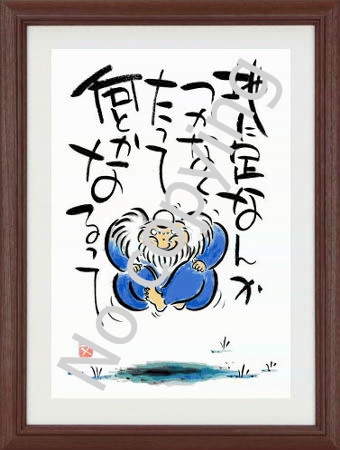 地に足なんか
つかなく
たって
何とかなるって
No Copying